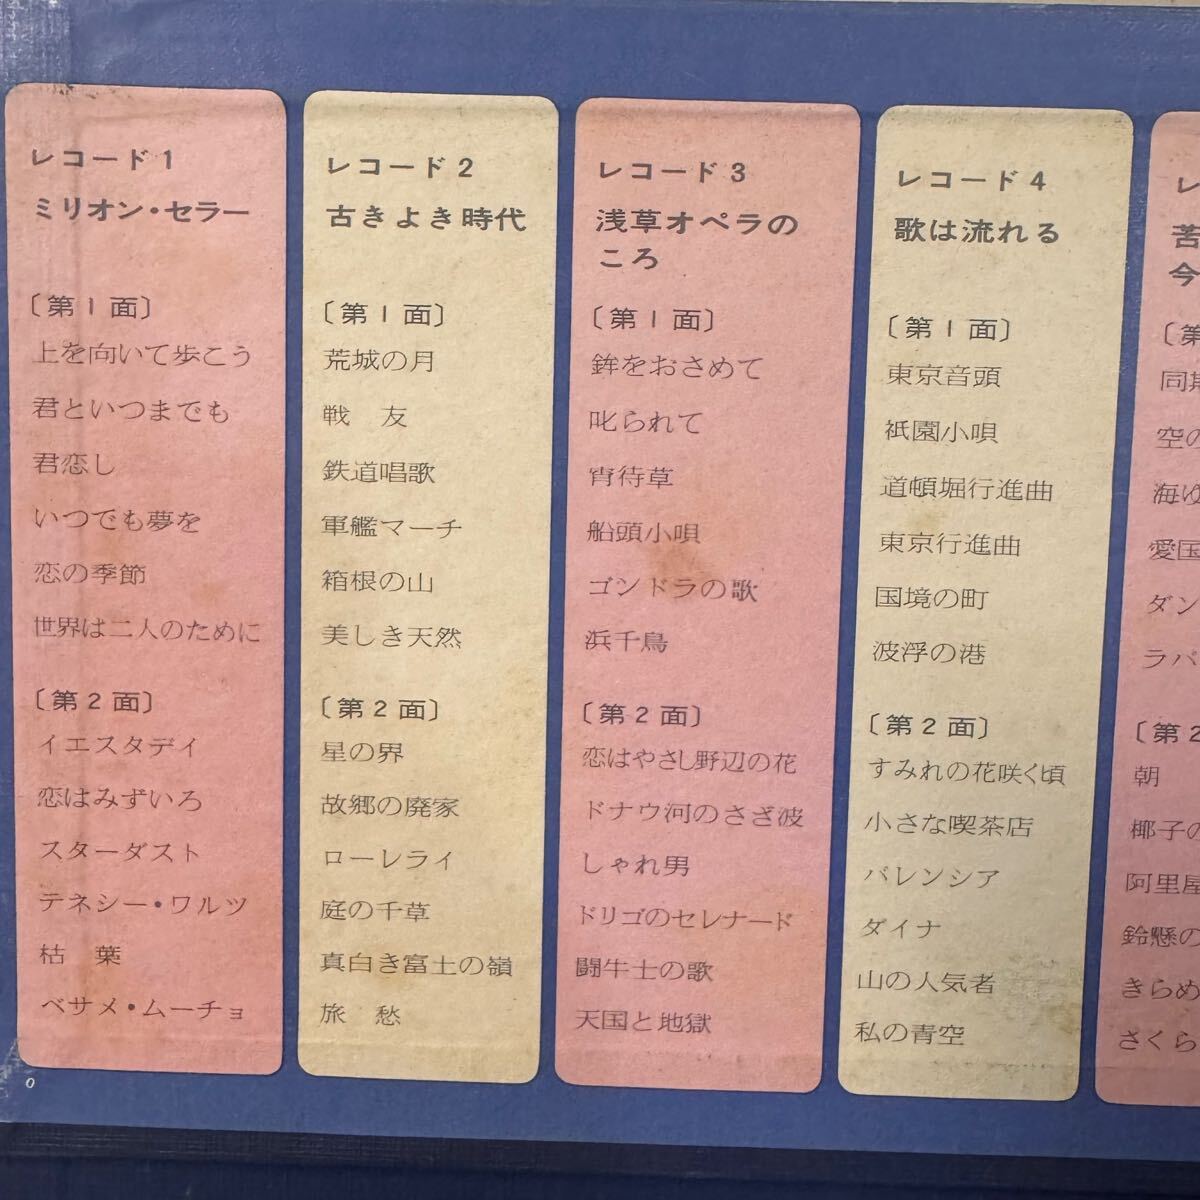 レコード1
ミリオン・セラー
〔第1面〕
上を向いて歩こう
君といつまでも
君恋し
いつでも夢を
恋の季節
世界は二人のために
〔第2面〕
イエスタデイ
恋はみずいろ
スターダスト
テネシー・ワルツ
枯　葉
ベサメ・ムーチョ
レコード2
古きよき時代
〔第1面〕
荒城の月
戦　友
鉄道唱歌
軍艦マーチ
箱根の山
美しき天然
〔第2面〕
星の界
故郷の廃家
ローレライ
庭の千草
真白き富士の嶺
旅　愁
レコード3
浅草オペラの
ころ
〔第1面〕
鉾をおさめて
叱られて
宵待草
船頭小唄
ゴンドラの歌
浜千鳥
〔第2面〕
恋はやさし野辺の花
ドナウ河のさざ波
しゃれ男
ドリゴのセレナード
闘牛士の歌
天国と地獄
レコード4
歌は流れる
〔第1面〕
東京音頭
祇園小唄
道頓堀行進曲
東京行進曲
国境の町
波浮の港
〔第2面〕
すみれの花咲く頃
小さな喫茶店
バレンシア
ダイナ
山の人気者
私の青空
レ
苦
今
〔第
同期
空の
海ゆ
愛国
ダン
ラバ
〔第2
朝
椰子の
阿里屋
鈴懸の
きらめ
さくら
0